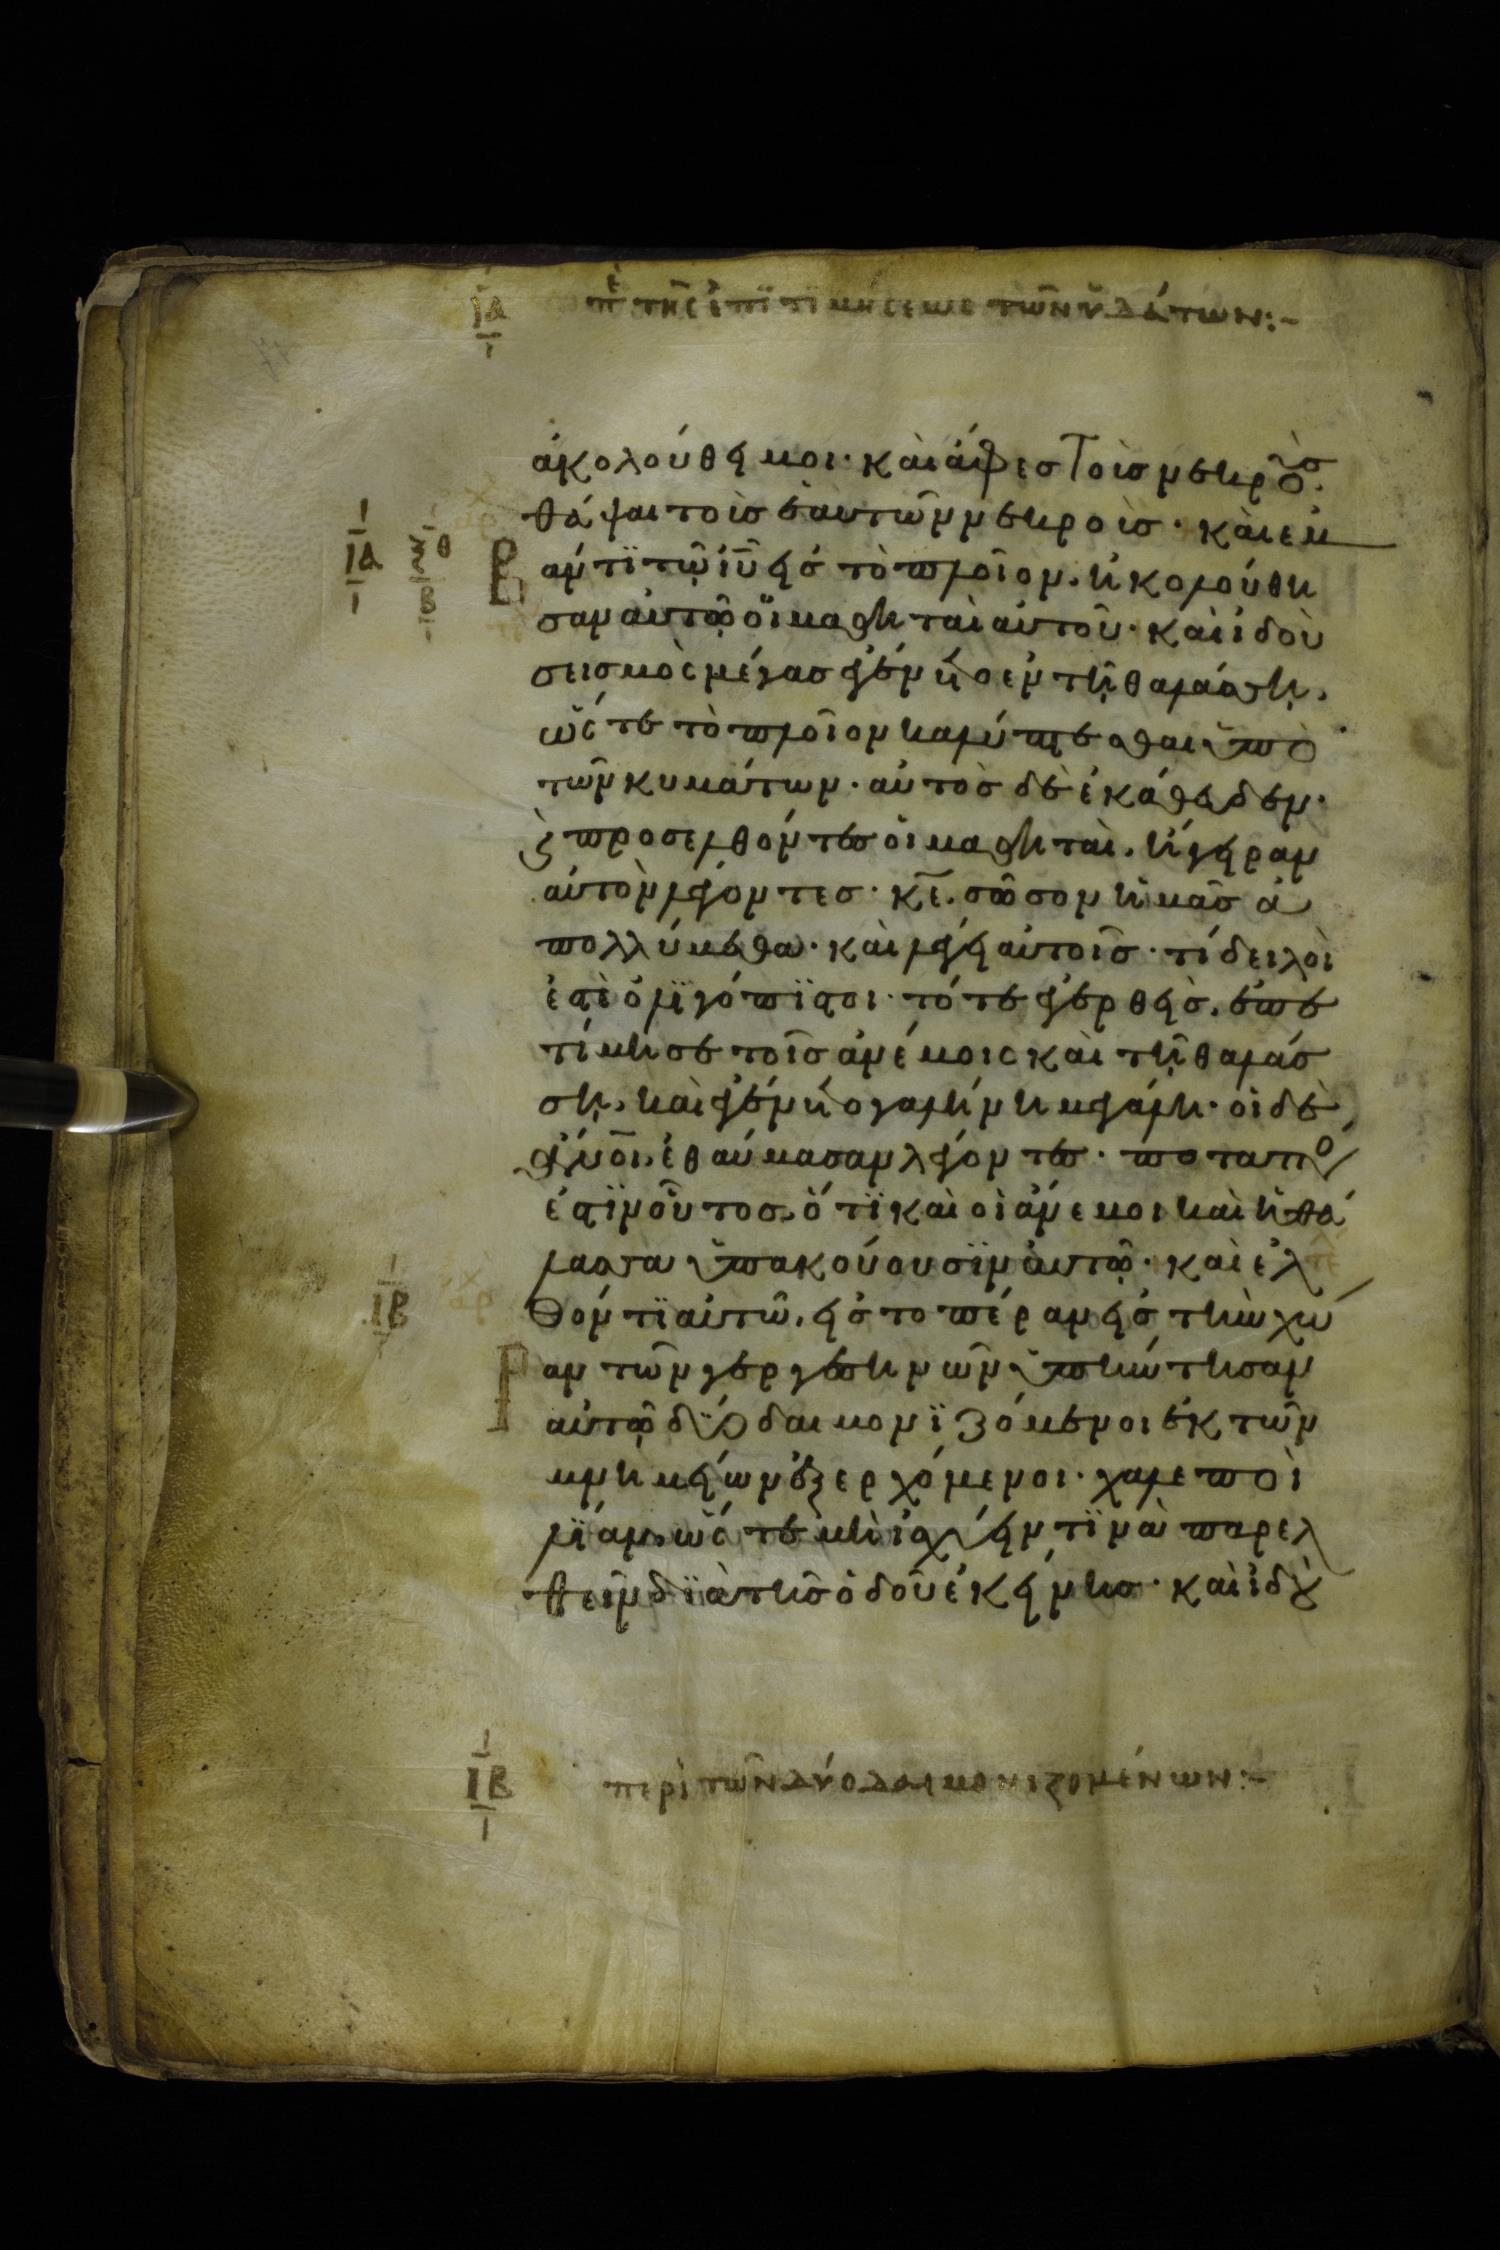 ΙΑ πε τῆς ἐπϊτϊμήσεως τῶν ὑδάτων:-
ἀκολούθει μοι· καὶ ἄφες τοὺς νεκροὺς
θάψαι τοὺς ἑαυτῶν νεκρούς· καὶ ἐμ
ΙΑ ξθ Β
βάντϊ τῷ ιυ εἰς τὸ πλοῖον, ἠκολούθη
σαν αὐτῷ οἱ μαθηταὶ αὐτοῦ· καὶ ἰδοὺ
σεισμὸς μέγας ἐγένετο ἐν τῇ θαλάσση,
ὥστε τὸ πλοῖον καλύπτεσθαι ὑπὸ
τῶν κυμάτων· αὐτὸς δὲ ἐκάθευδεν·
καὶ προσελθόντες οἱ μαθηταὶ, ἤγειραν
αὐτὸν λέγοντες· κε, σῶσον ἡμᾶς ἀ
πολλύμεθα· καὶ λέγει αὐτοῖς· τί δειλοί
ἐστὲ ὀλϊγόπϊστοι· τότε ἐγερθεὶς, ἐπε
τίμησε τοῖς ἀνέμοις καὶ τῇ θαλάσ
ση, καὶ ἐγένετο γαλήνη μεγάλη· οἱ δὲ
ἀνοι, ἐθαύμασαν λέγοντες· ποταπός
ἐστϊν οὗτος, ὅτϊ καὶ οἱ ἄνεμοι καὶ ἡ θά
λασσα ὑπακούουσϊν αὐτῷ· καὶ ἐλ
ΙΒ
θόντϊ αὐτῶ, εἰς το πέραν εἰς τὴν χώ
ραν τῶν γεργεσηνῶν, ὑπήντησαν
αὐτῷ δύο δαιμονϊζόμενοι ἐκ τῶν
μνημείων ἐξερχόμενοι· χαλεποὶ
λΐαν, ὥστε μὴ ἰσχύειν τϊνὰ παρελ
θεῖν δϊὰ τῆς ὁδοῦ ἐκείνης· καὶ ἰδοὺ
ΙΒ περὶ τῶν δύο δαιμονιζομένων:-